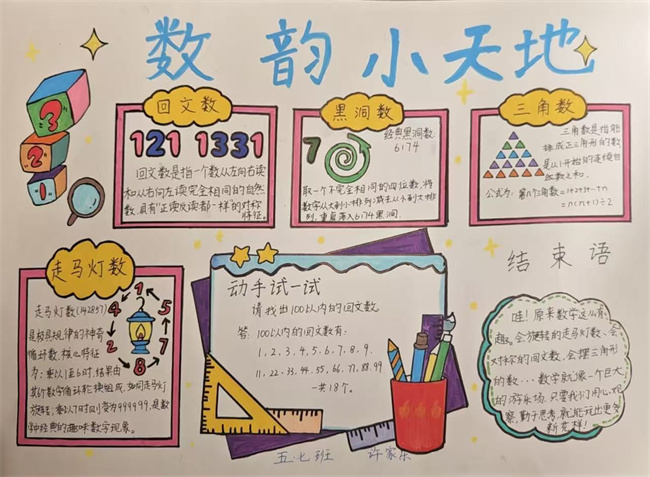 数韵小天地
回文数
121 1331
回文数是指一个数从左向右读
和从右向左读完全相同的自然
数,具有"正读反读都一样"的对称
特征。
黑洞数
7
经典黑洞数
6174
取一个不完全相同的四位数,将
数字从大到小排列
列,重复落入6174黑洞。
三角数
三角数是指能
排成正三角形的数,
是从1开始的连续自
然数之和。
公式为:第n个三角数=1+2+3+…+n
=n(n+1)÷2
走马灯数
走马灯数(142857)
是极具规律的神奇
循环数,核心特征
为:乘以1至6时,结果由
其6个数字循环轮换组成,如同走马灯
旋转;乘以7时又变为999999,是数
学中经典的趣味数字现象。
1
4
5
2
7
8
动手试一试
请找出100以内的回文数。
答:100以内的回文数有:
1、2、3、4、5、6、7、8、9、
11、22、33、44、55、66、77、88、99
一共18个。
结束语
哇!原来数学这么有
趣。会旋转的走马灯数、会
对称的回文数、会摆三角形
的数…数学就像一个巨大
的游乐场,只要我们用心观
察,勤于思考,就能玩出更多
新花样!
3
2
1
五·七班 许家乐